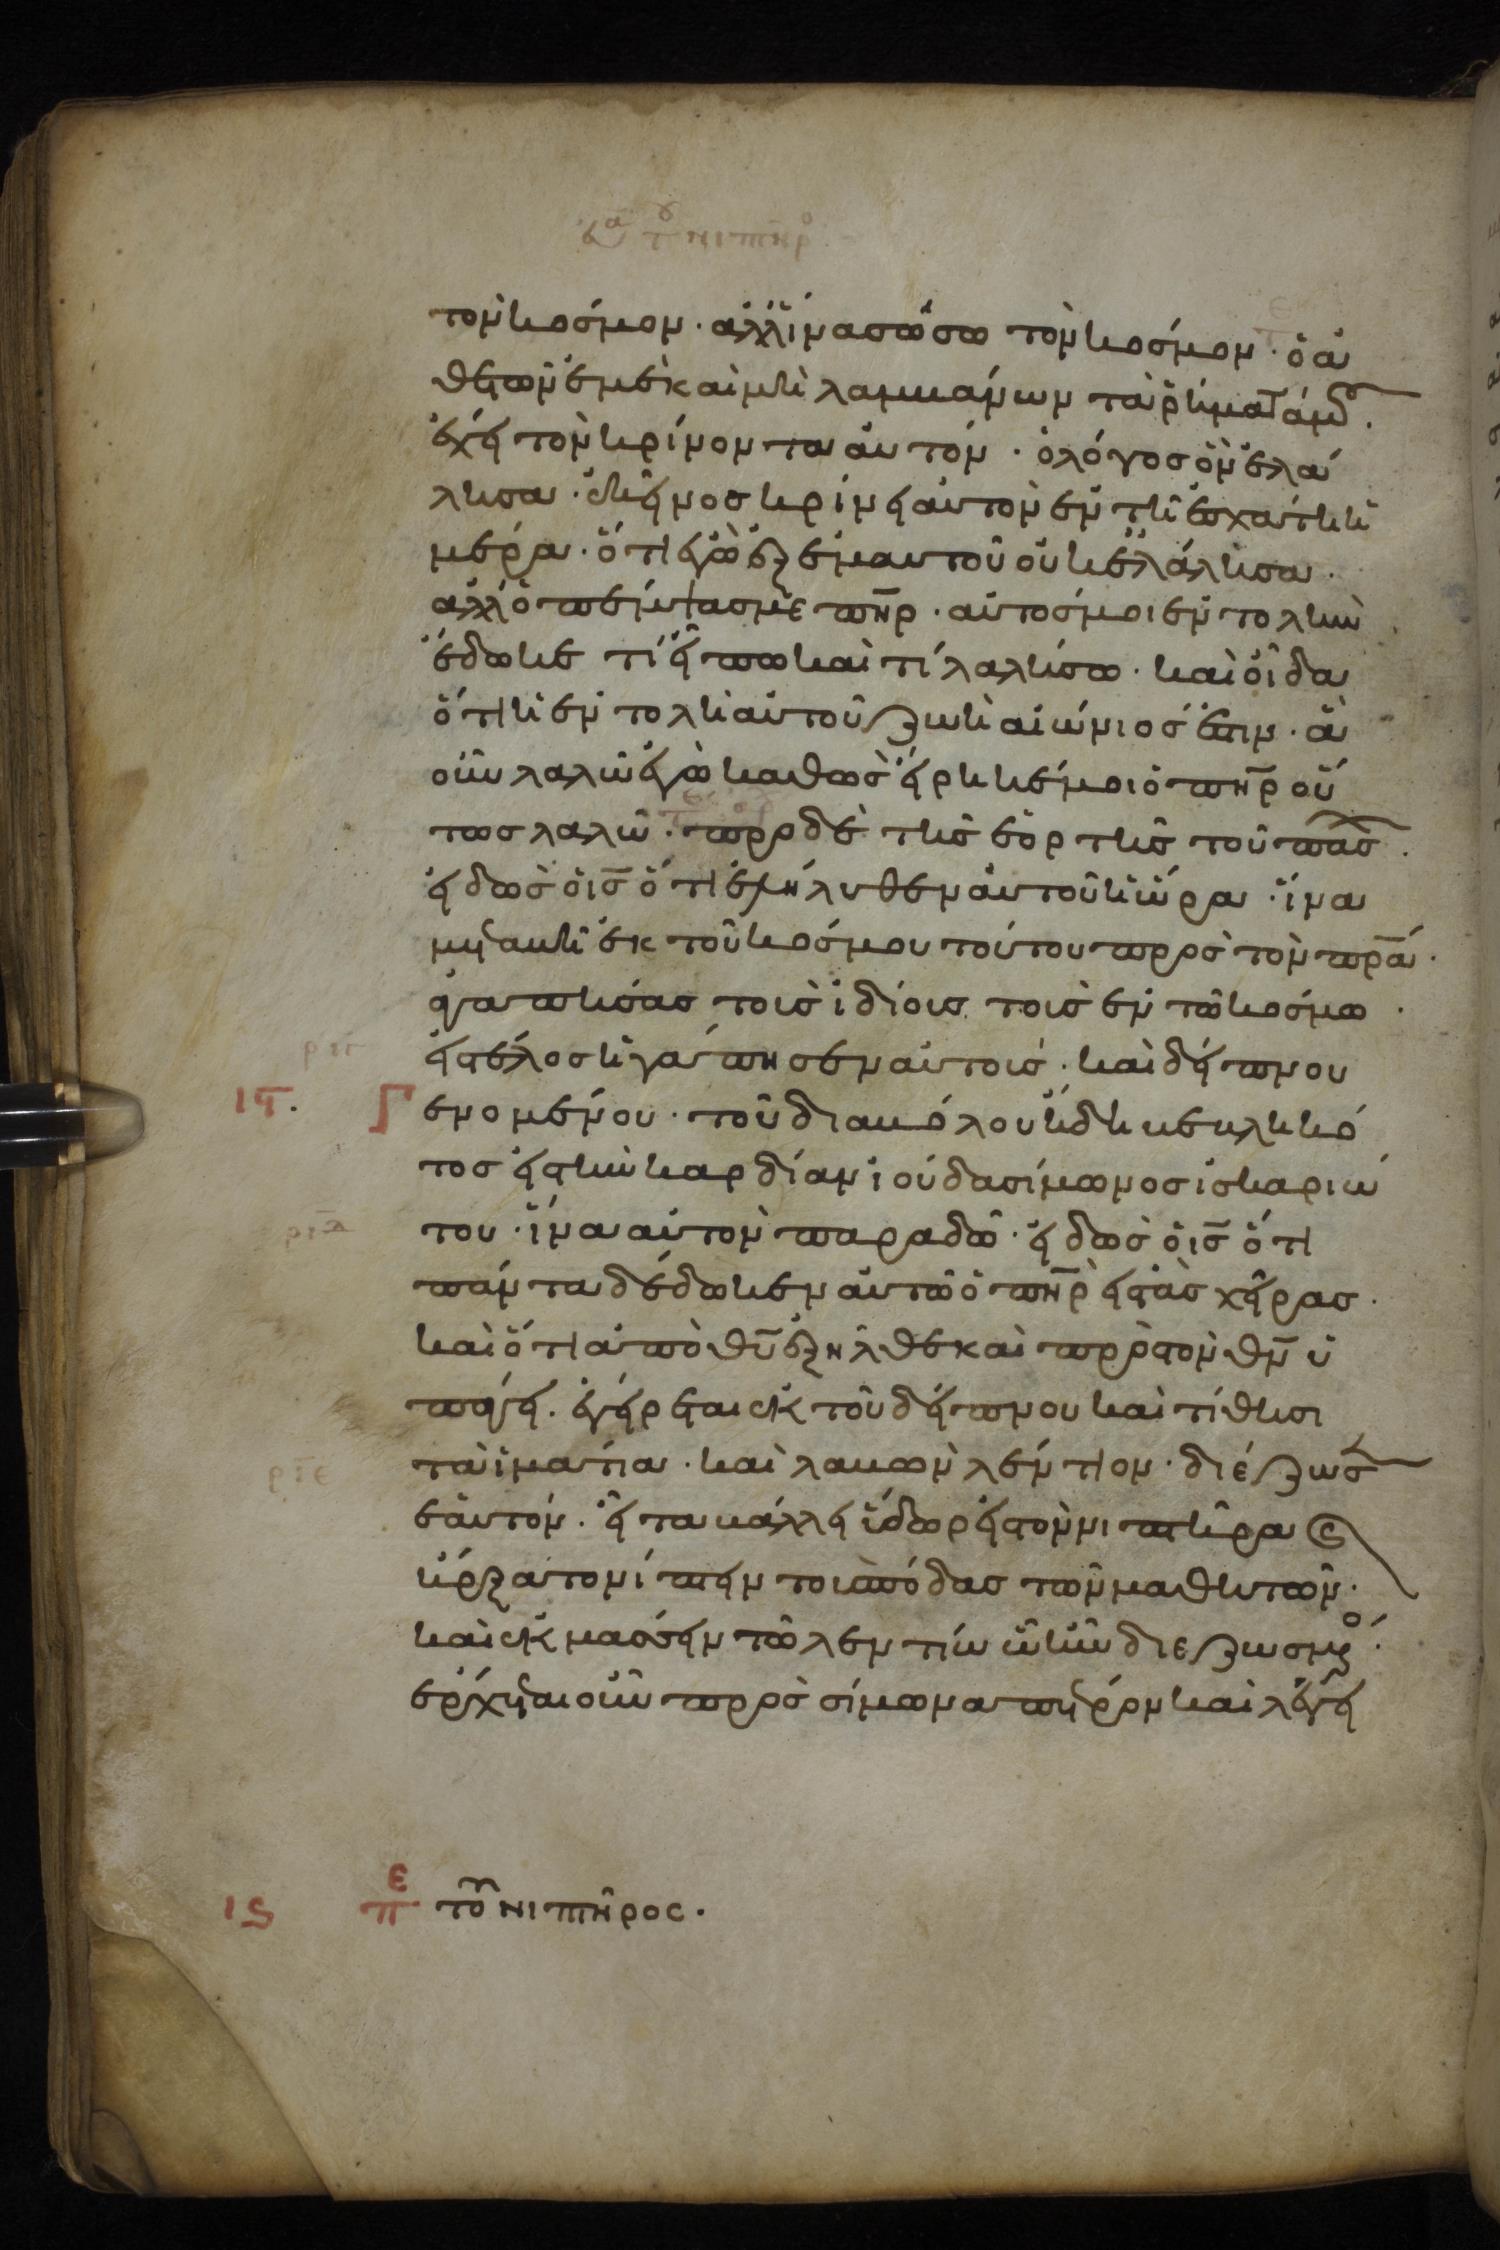 τὸν κόσμον · ἀλλ' ἵνα σώσω τὸν κόσμον · ὁ ἀ
θετῶν ἐμὲ καὶ μὴ λαμβάνων τὰ ῥήματά μου ·
ἔχει τὸν κρίνοντα αὐτόν · ὁ λόγος ὃν ἐλά
λησα · ἐκεῖνος κρίνει αὐτὸν ἐν τῇ ἐσχάτη ἡ
μέρα · ὅτι ἐγὼ ἐξ ἐμαυτοῦ οὐκ ἐλάλησα ·
ἀλλ' ὁ πέμψας με πηρ · αὐτός μοι ἐντολὴν
ἔδωκε τί εἴπω καὶ τί λαλήσω · καὶ οἶδα
ὅτι ἡ ἐντολὴ αὐτοῦ ζωὴ αἰώνιός ἐστιν · ἃ
οὖν λαλῶ ἐγὼ καθὼς εἴρηκέ μοι ὁ πηρ οὕ
τως λαλῶ · πρὸ δὲ τῆς ἑορτῆς τοῦ πάσχα ·
εἰδὼς ὁ ις ὅτι ἐλήλυθεν αὐτοῦ ἡ ὥρα · ἵνα
μεταβῆ ἐκ τοῦ κόσμου τούτου πρὸς τὸν πρα ·
ἀγαπήσας τοὺς ἰδίους τοὺς ἐν τῶ κόσμω ·
εἰς τέλος ἠγάπησεν αὐτούς · καὶ δείπνου
ριγ
ιε · γενομένου · τοῦ διαβόλου ἤδη βεβληκό
τος εἰς τὴν καρδίαν ἰούδα σίμωνος ἰσκαριώ
ριδ του · ἵνα αὐτὸν παραδῶ · εἰδὼς ὁ ις ὅτι
πάντα δέδωκεν αὐτῶ ὁ πηρ εἰς τὰς χεῖρας ·
καὶ ὅτι ἀπὸ θυ ἐξῆλθε καὶ πρὸς τὸν θν ὑ
πάγει · ἐγείρεται ἐκ τοῦ δείπνου καὶ τίθησι
ριε τὰ ἱμάτια · καὶ λαβὼν λέντιον · διέζωσ
εν ἑαυτόν · εἶτα βάλλει ὕδωρ εἰς τὸν νιπτῆρα καὶ
ἤρξατο νίπτειν τοὺς πόδας τῶν μαθητῶν ·
καὶ ἐκμάσσειν τῶ λεντίω ὧ ἦν διεζωσμένος ·
ἔρχεται οὖν πρὸς σίμωνα πέτρον καὶ λέγει
ιϛ πε τοῦ νιπτῆρος ·